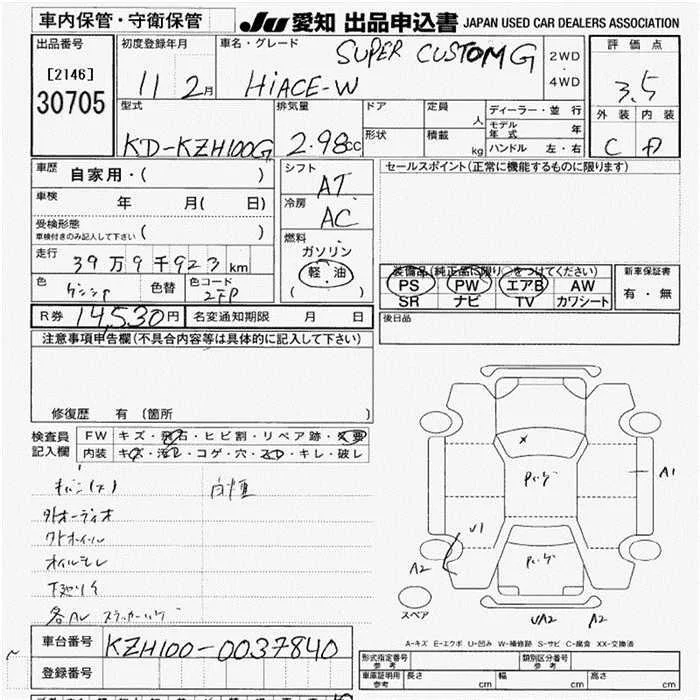 車内保管・守衛保管
JU 愛知 出品申込書 JAPAN USED CAR DEALERS ASSOCIATION
出品番号
[2146]
30705
初度登録年月
11 2月
車名・グレード
SUPER CUSTOM G
HiACE-W
2WD
・
4WD
評価点
3.5
外装 内装
C D
型式
KD-KZH100G
排気量
2.98cc
ドア
形状
定員
人
積載
kg
ディーラー・並行
モデル年式 年
ハンドル 左・右
車歴
自家用・( )
車検
年 月( 日)
受検形態
車検付きのみ記入して下さい ( )
走行
39万9千923km
色
色替
色コード
シフト
AT
冷房
AC
燃料
ガソリン
軽・油
( )
セールスポイント(正常に機能するものに限ります)
装備品(純正品に限り○をつけてください)
PS PW エアB AW
SR ナビ TV カワシート
新車保証書
有・無
R券 14,530円
名変通知期限 月 日
後日品
注意事項申告欄(不具合内容等は具体的に記入して下さい)
修復歴 有(箇所 )
検査員
記入欄
FW キズ・飛石・ヒビ割・リペア跡・交要
内装 キズ・汚レ・コゲ・穴・スレ・キレ・破レ
外オーディオ
外ホイール
オイルモレ
下廻りサ
A1
U1
A2
スペア
UA2
A2
A-キズ E-エクボ U-凹み W-補修跡 S-サビ C-腐食 XX-交換済
車台番号 KZH100-0037840
登録番号
形式指定番号
参考
類別区分番号
参考
車庫証明用
参考
長さ cm
幅 cm
高さ cm